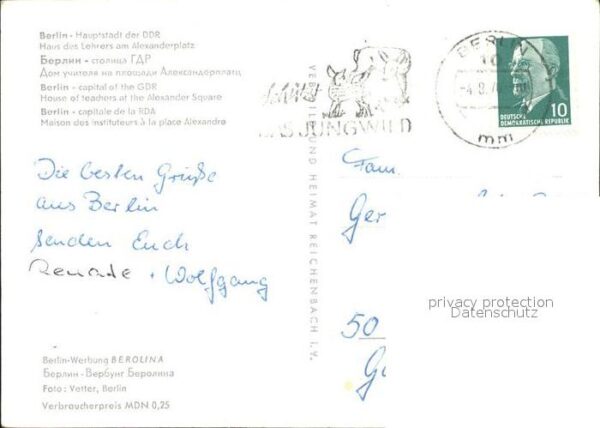 Berlin - Hauptstadt der DDR
Haus des Lehrers am Alexanderplatz
Берлин - столица ГДР
Дом учителя на площади Александерплатц
Berlin - capital of the GDR
House of teachers at the Alexander Square
Berlin - capitale de la RDA
Maison des instituteurs à la place Alexandre
Die besten Grüße
aus Berlin
senden Euch
Renate + Wolfgang
Berlin-Werbung BEROLINA
Берлин - Вербунг Беролина
Foto: Vetter, Berlin
Verbraucherpreis MDN 0,25
HEIMAT REICHENBACH I. V.
DAS JUNGWILD
BERLIN
10
mm
10
DEUTSCHE
DEMOKRATISCHE REPUBLIK
Fam.
Ger
50
privacy protection
Datenschutz